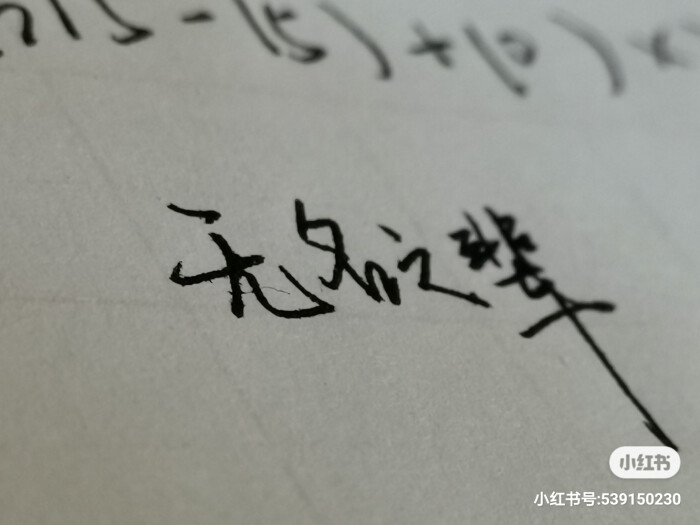 15-(5)+(0)×
无名之辈
小红书
小红书号:539150230